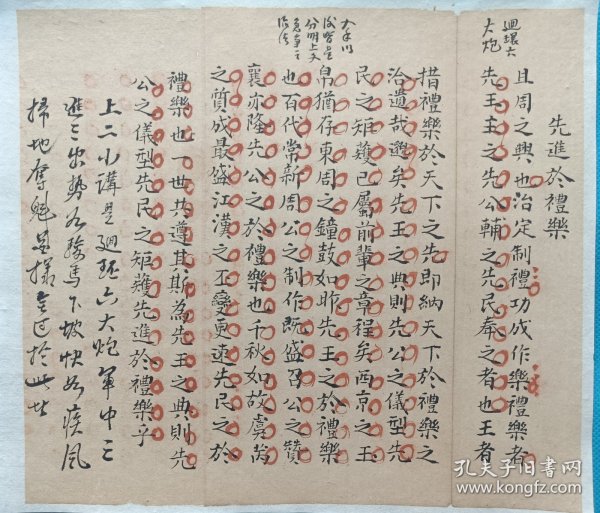 迴環六
大炮
先進於禮樂
且周之興也治定制禮功成作樂禮樂者
先王主之先公輔之先民奉之者也王者
大手川
後皆是
分明上文
措禮樂於天下之先即納天下於禮樂之
治遺哉邈矣先王之典則先公之儀型先
民之矩矱已屬前輩之章程矣西京之玉
帛猶存東周之鐘鼓如昨先王之於禮樂
也百代常新周公之制作既盛召公之贊
襄亦隆先公之於禮樂也千秋如故虞芮
之質成最盛江漢之丕變更速先民之於
禮樂也一世共遵其斯為先王之典則先
公之儀型先民之矩矱先進於禮樂乎
上二小講是迴環六大炮軍中三
進三出勢如駿馬下坡快如疾風
掃地奪魁
孔夫子旧书网
www.kongfz.com